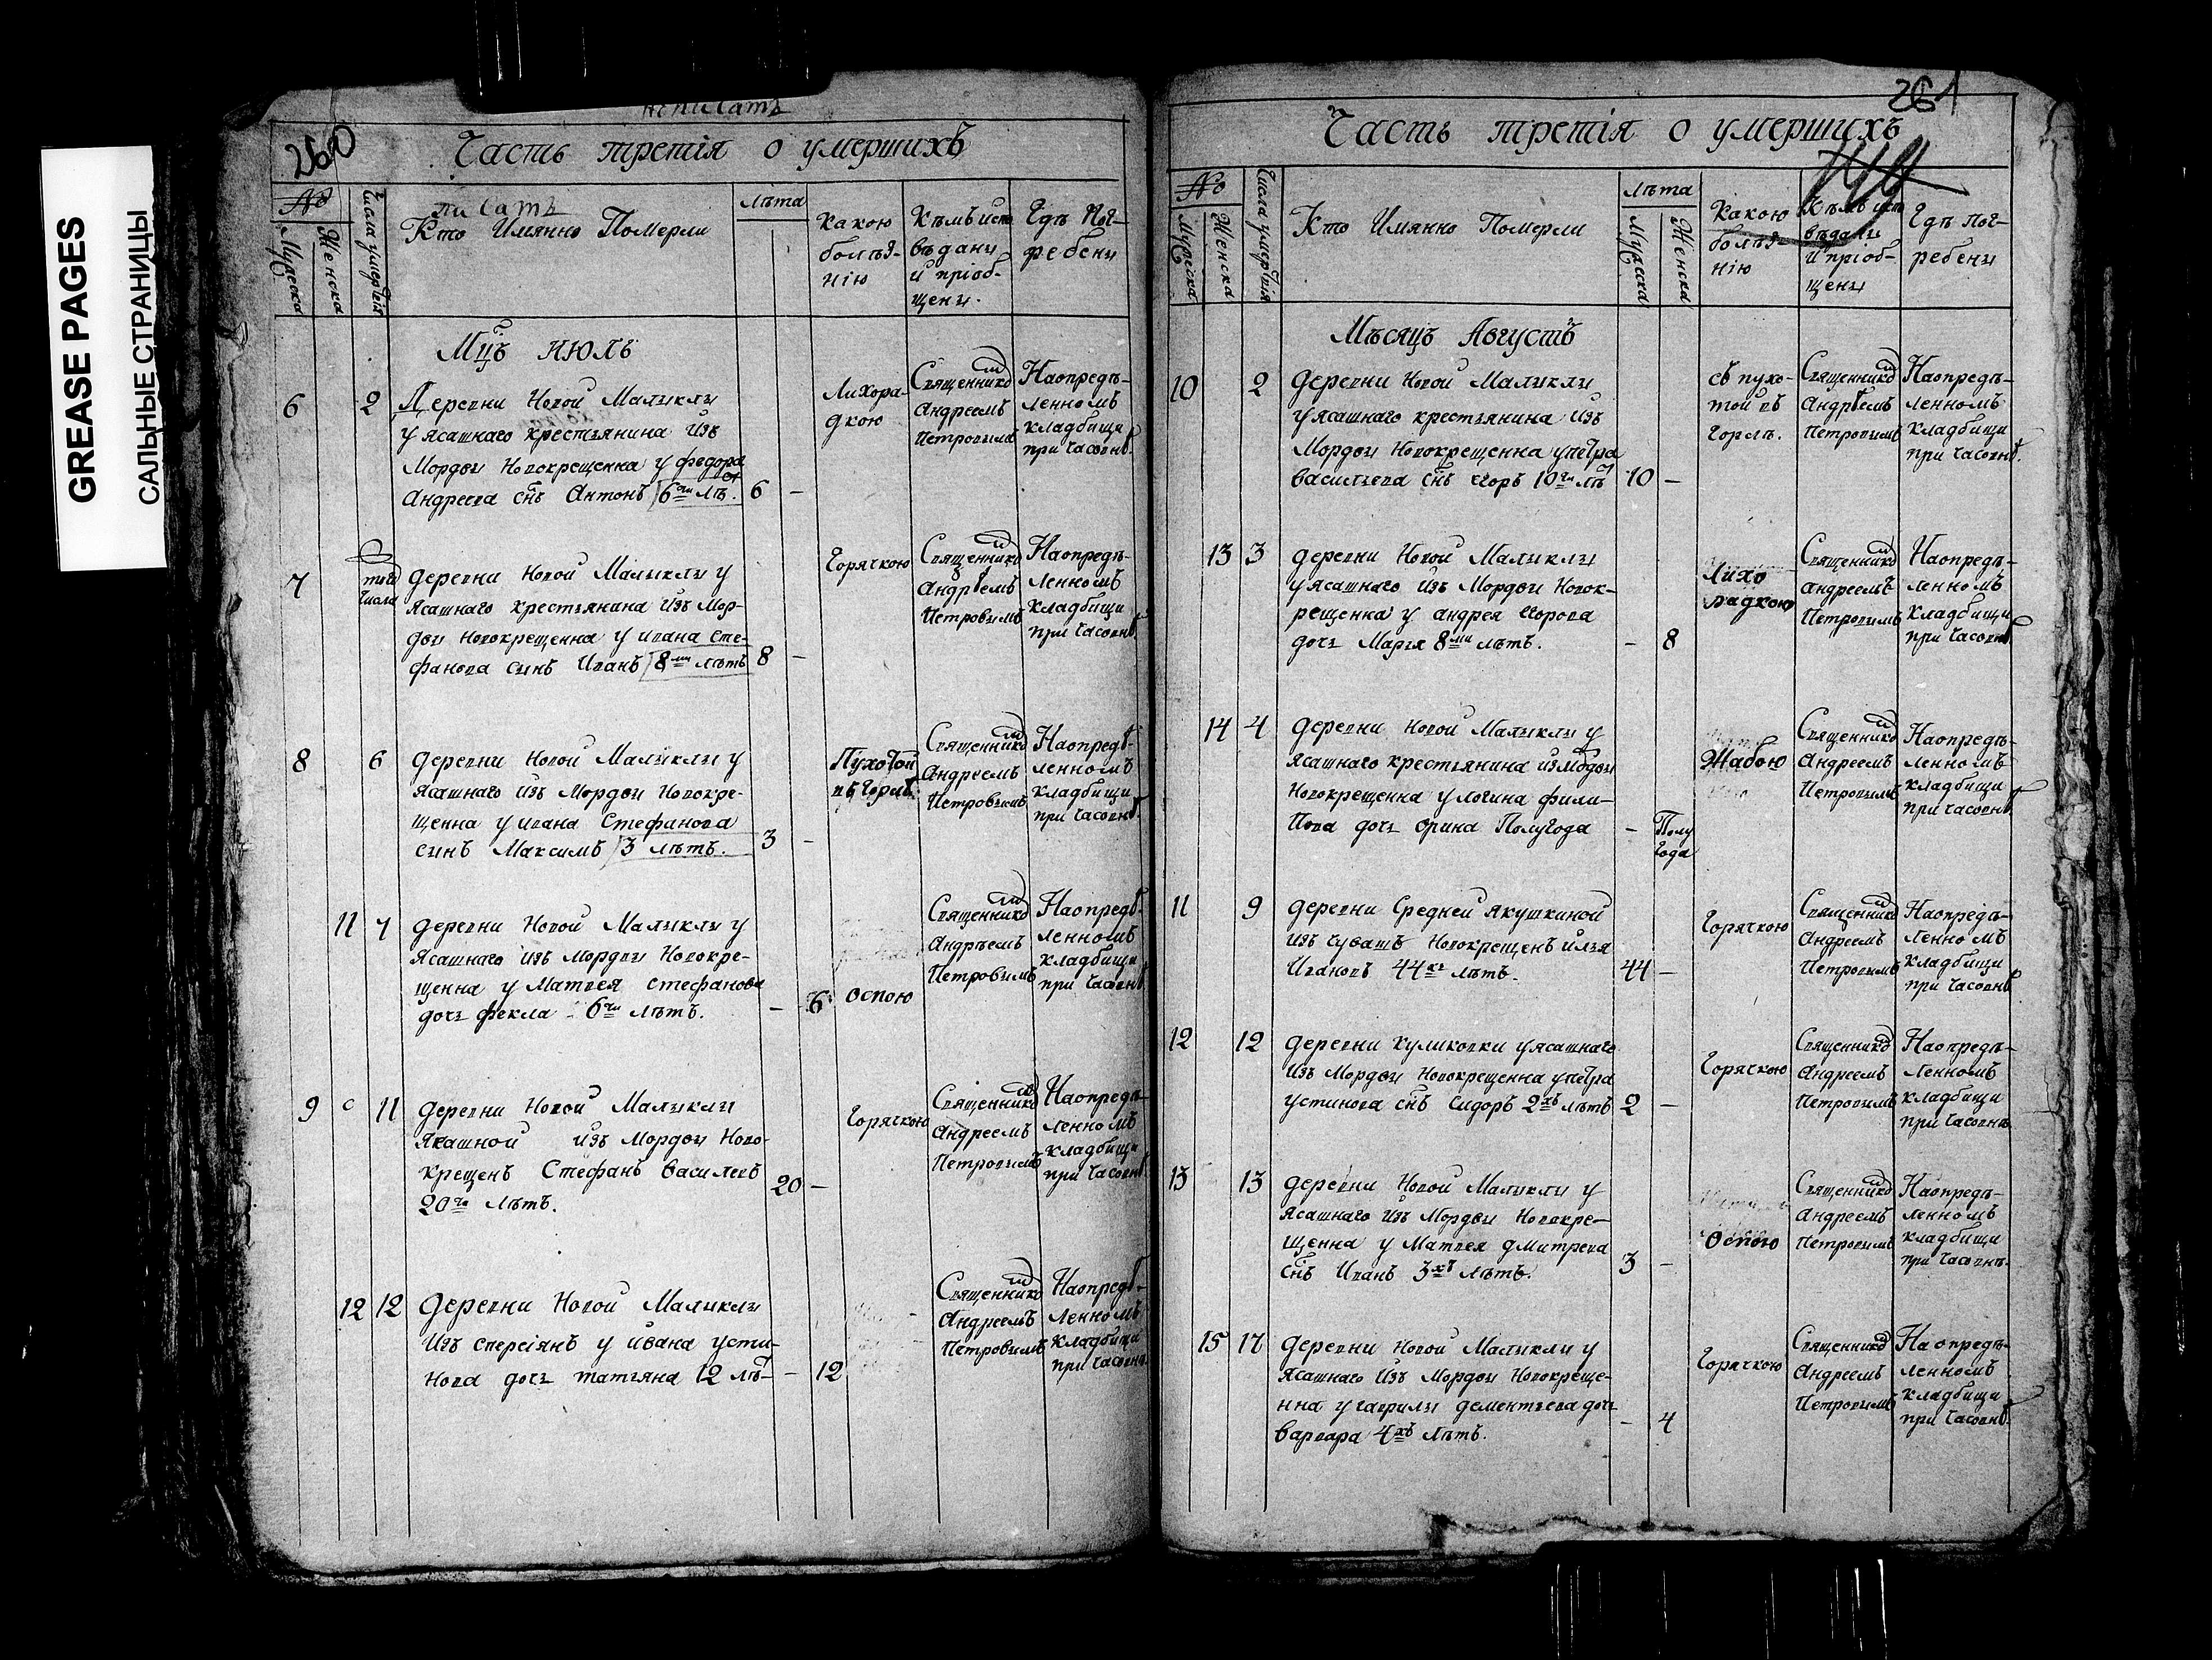 GREASE PAGES
САЛЬНЫЕ СТРАНИЦЫ
260
Часть третія о умершихъ
№
Мужеска
Женска
Числа умертвія
писатъ
Кто Имянно Померли
лѣта
Какою
болѣз-
нію
Кѣмъ испо
вѣданы
и пріоб-
щены.
Гдѣ Пог-
ребены
Мцъ июль
6
2
Деревни Новой Малыклы
у ясашнаго крестьянина изъ
Мордвы Новокрещенна у федора
Андреева снъ Антонъ 6ти лѣ.
6 -
Лихора-
дкою
Священнико
Андреемъ
Петровымъ
Наопредѣ-
ленномъ
кладбищи
при часовнѣ.
7
того
числа
деревни Новой Малыклы у
ясашнаго крестьянина изъ Мор-
двы новокрещенна у ивана сте-
фанова сынъ Иванъ 8ми лѣтъ
8 -
Горячкою
Священнико
Андрѣемъ
Петровымъ
Наопредѣ-
ленномъ
кладбищи
при часовнѣ.
8
6
деревни Новой Малыклы у
ясашнаго изъ Мордвы Новокре-
щенна у ивана Стефанова
сынъ Максимъ 3 лѣтъ.
3 -
Пухотой
въ Горлѣ
Священнико
Андреемъ
Петровымъ
Наопредѣ-
ленномъ
кладбищи
при часовнѣ.
11 7
деревни Новой Малыклы у
ясашнаго изъ мордвы Новокре-
щенна у Матвея стефанова
дочь фекла 6ти лѣтъ.
- 6
оспою
Священнико
Андрѣемъ
Петровымъ
Наопредѣ-
ленномъ
кладбищи
при часовнѣ
9 с 11
деревни Новой Малыклы
Ясашной изъ Мордвы Ново-
крещенъ Стефанъ Василевъ
20ти лѣтъ.
20 -
Горячкою
Священнико
Андреемъ
Петровымъ
Наопредѣ-
ленномъ
кладбищи
при часовнѣ
12 12
деревни Новой Малыклы
Изъ сперсіянъ у ивана усти-
нова дочь татьяна 12 лѣ-
- 12
Священнико
Андреемъ
Петровымъ
Наопредѣ-
ленномъ
кладбищи
при часовнѣ
261
Часть третія о умершихъ
№
Мужеска
Женска
Числа умертвія
Кто Имянно Померли
лѣта
Мужеска
Женска
Какою
болѣз-
нію
Кѣмъ исп
вѣданы
и пріоб-
щены
Гдѣ пог-
ребены
Мѣсяцъ Августъ
10
2
деревни Новой Малыклы
у ясашнаго крестьянина изъ
Мордвы Новокрещенна у петра
васильева снъ егоръ 10ти лѣ
10 -
съ пухо-
той въ
горлѣ.
Священнико
Андрѣемъ
Петровымъ
Наопредѣ-
ленномъ
кладбищи
при часовнѣ.
13 3
деревни Новой Малыклы
у ясашнаго изъ Мордвы Новок-
рещенна у андрея егорова
дочь Марья 8ми лѣтъ.
- 8
Лихо
радкою
Священнико
андреемъ
Петровымъ
Наопредѣ-
ленномъ
кладбищи
при часовнѣ
14 4
деревни Новой Малыклы у
ясашнаго крестьянина изъ модвы
новокрещенна у логина фили-
пова дочь орина Полугода
- Полу
года
Жабою
Священнико
Андреемъ
Петровымъ
Наопредѣ-
ленномъ
кладбищи
при часовнѣ
11
9
деревни Средней якушкиной
изъ чувашъ Новокрещенъ илья
Ивановъ 44хъ лѣтъ.
44 -
Горячкою
Священнико
Андреемъ
Петровымъ
Наопредѣ-
ленномъ
кладбищи
при часовнѣ
12
12
деревни куликовки у ясашнаго
изъ Мордвы Новокрещенна у петра
устинова снъ Сидоръ 2хъ лѣтъ
2 -
Горячкою
Священнико
Андреемъ
Петровымъ
Наопредѣ-
ленномъ
кладбищи
при часовнѣ
13
13
деревни Новой Малыклы у
ясашнаго изъ Мордвы Новокре-
щенна у Матвея дмитрева
снъ Иванъ 3хъ лѣтъ.
3 -
Оспою
Священнико
Андреемъ
Петровымъ
Наопредѣ-
ленномъ
кладбищи
при часовнѣ.
15 17
деревни Новой Малыклы у
ясашнаго изъ Мордвы Новокреще-
нна у гаврилы дементьева дочь
варвара 4хъ лѣтъ.
- 4
Горячкою
Священнико
Андреемъ
Петровымъ
Наопредѣ-
ленномъ
кладбищи
при часовнѣ.